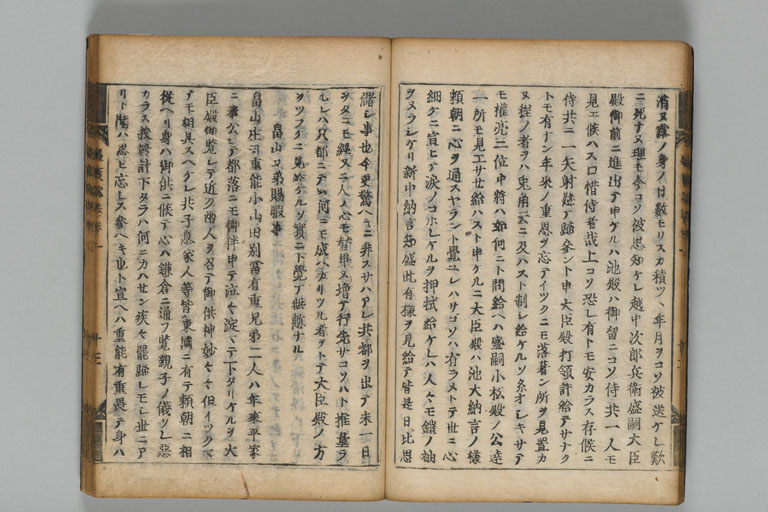 消ヌ露ノ身ノ日数モリスカ積ツヽ年月ヲコソ被送ケレ歎
ニ死ナヌ理モ今コソ被思知ケレ越中次郎兵衛盛嗣大臣
殿御前ニ進出テ申ケルハ池殿ハ御留ニコソ侍共一人モ
見エ候ハス口惜侍者哉上コソ恐レ有トモ安カラス存候ニ
侍共ニ一矢射懸テ歸參ント申大臣殿打領許給テサナク
トモ有ナン年來ノ重恩ヲ忘テイツクニモ落著ン所ヲ見置カ
ヌ程ノ者ヲハ兎角云ニ及ハスト制シ給ケルソ糸オレキサテ
モ權亮三位中將ハ如何ニト問給ヘハ盛嗣小松殿ノ公達
一所モ見エサせ給ハスト申ケルニ大臣殿ハ池大納言ノ様
頼朝ニ心ヲ通スヤラント覺ユレハサコソハ有ラメトテ世ニ心
細ケニ宣ヒテ涙ノコホレケルヲ押拭給ケレハ人々モ鎧ノ袖
ヲヌラシケリ新中納言知盛此有様ヲ見給テ皆是日比思
儲レ事也今更驚ヘキニ非スサハアレ共都ヲ出テ未一日
ヲタニモ經ヌニ人ノ心モ替畢ヌ増テ行先サコソハト推量ラ
ルレハ只都ニテ何ニモ成ヘカリツル者ヲトテ大臣殿ノ方
ヲツラクニ見ケルソ實ニト覺テ無慙ナル
畠山兄弟賜暇事
畠山庄司重能小山田別當有重兄弟二人ハ年來平家
ニ奉公シテ都落ニモ御伴申テ泣々淀マテ下タリケルヲ大
臣殿御覧シテ近ク両人ヲ召テ御供神妙々々但イツクマ
テモ相具スヘケレ共子息家人等皆東國ニ有テ頼朝ニ相
從ヘリ身ハ御供ニ候テ心ハ鎌倉ニ通フ覧親子ノ儀ソレ惡
カラス拔殻計下タラハ何ニカハせン疾々罷歸レモシ世ニア
リト聞ハ思ヒ忘レス參ヘキ也ト宣ヘハ重能有重畏テ身ハ